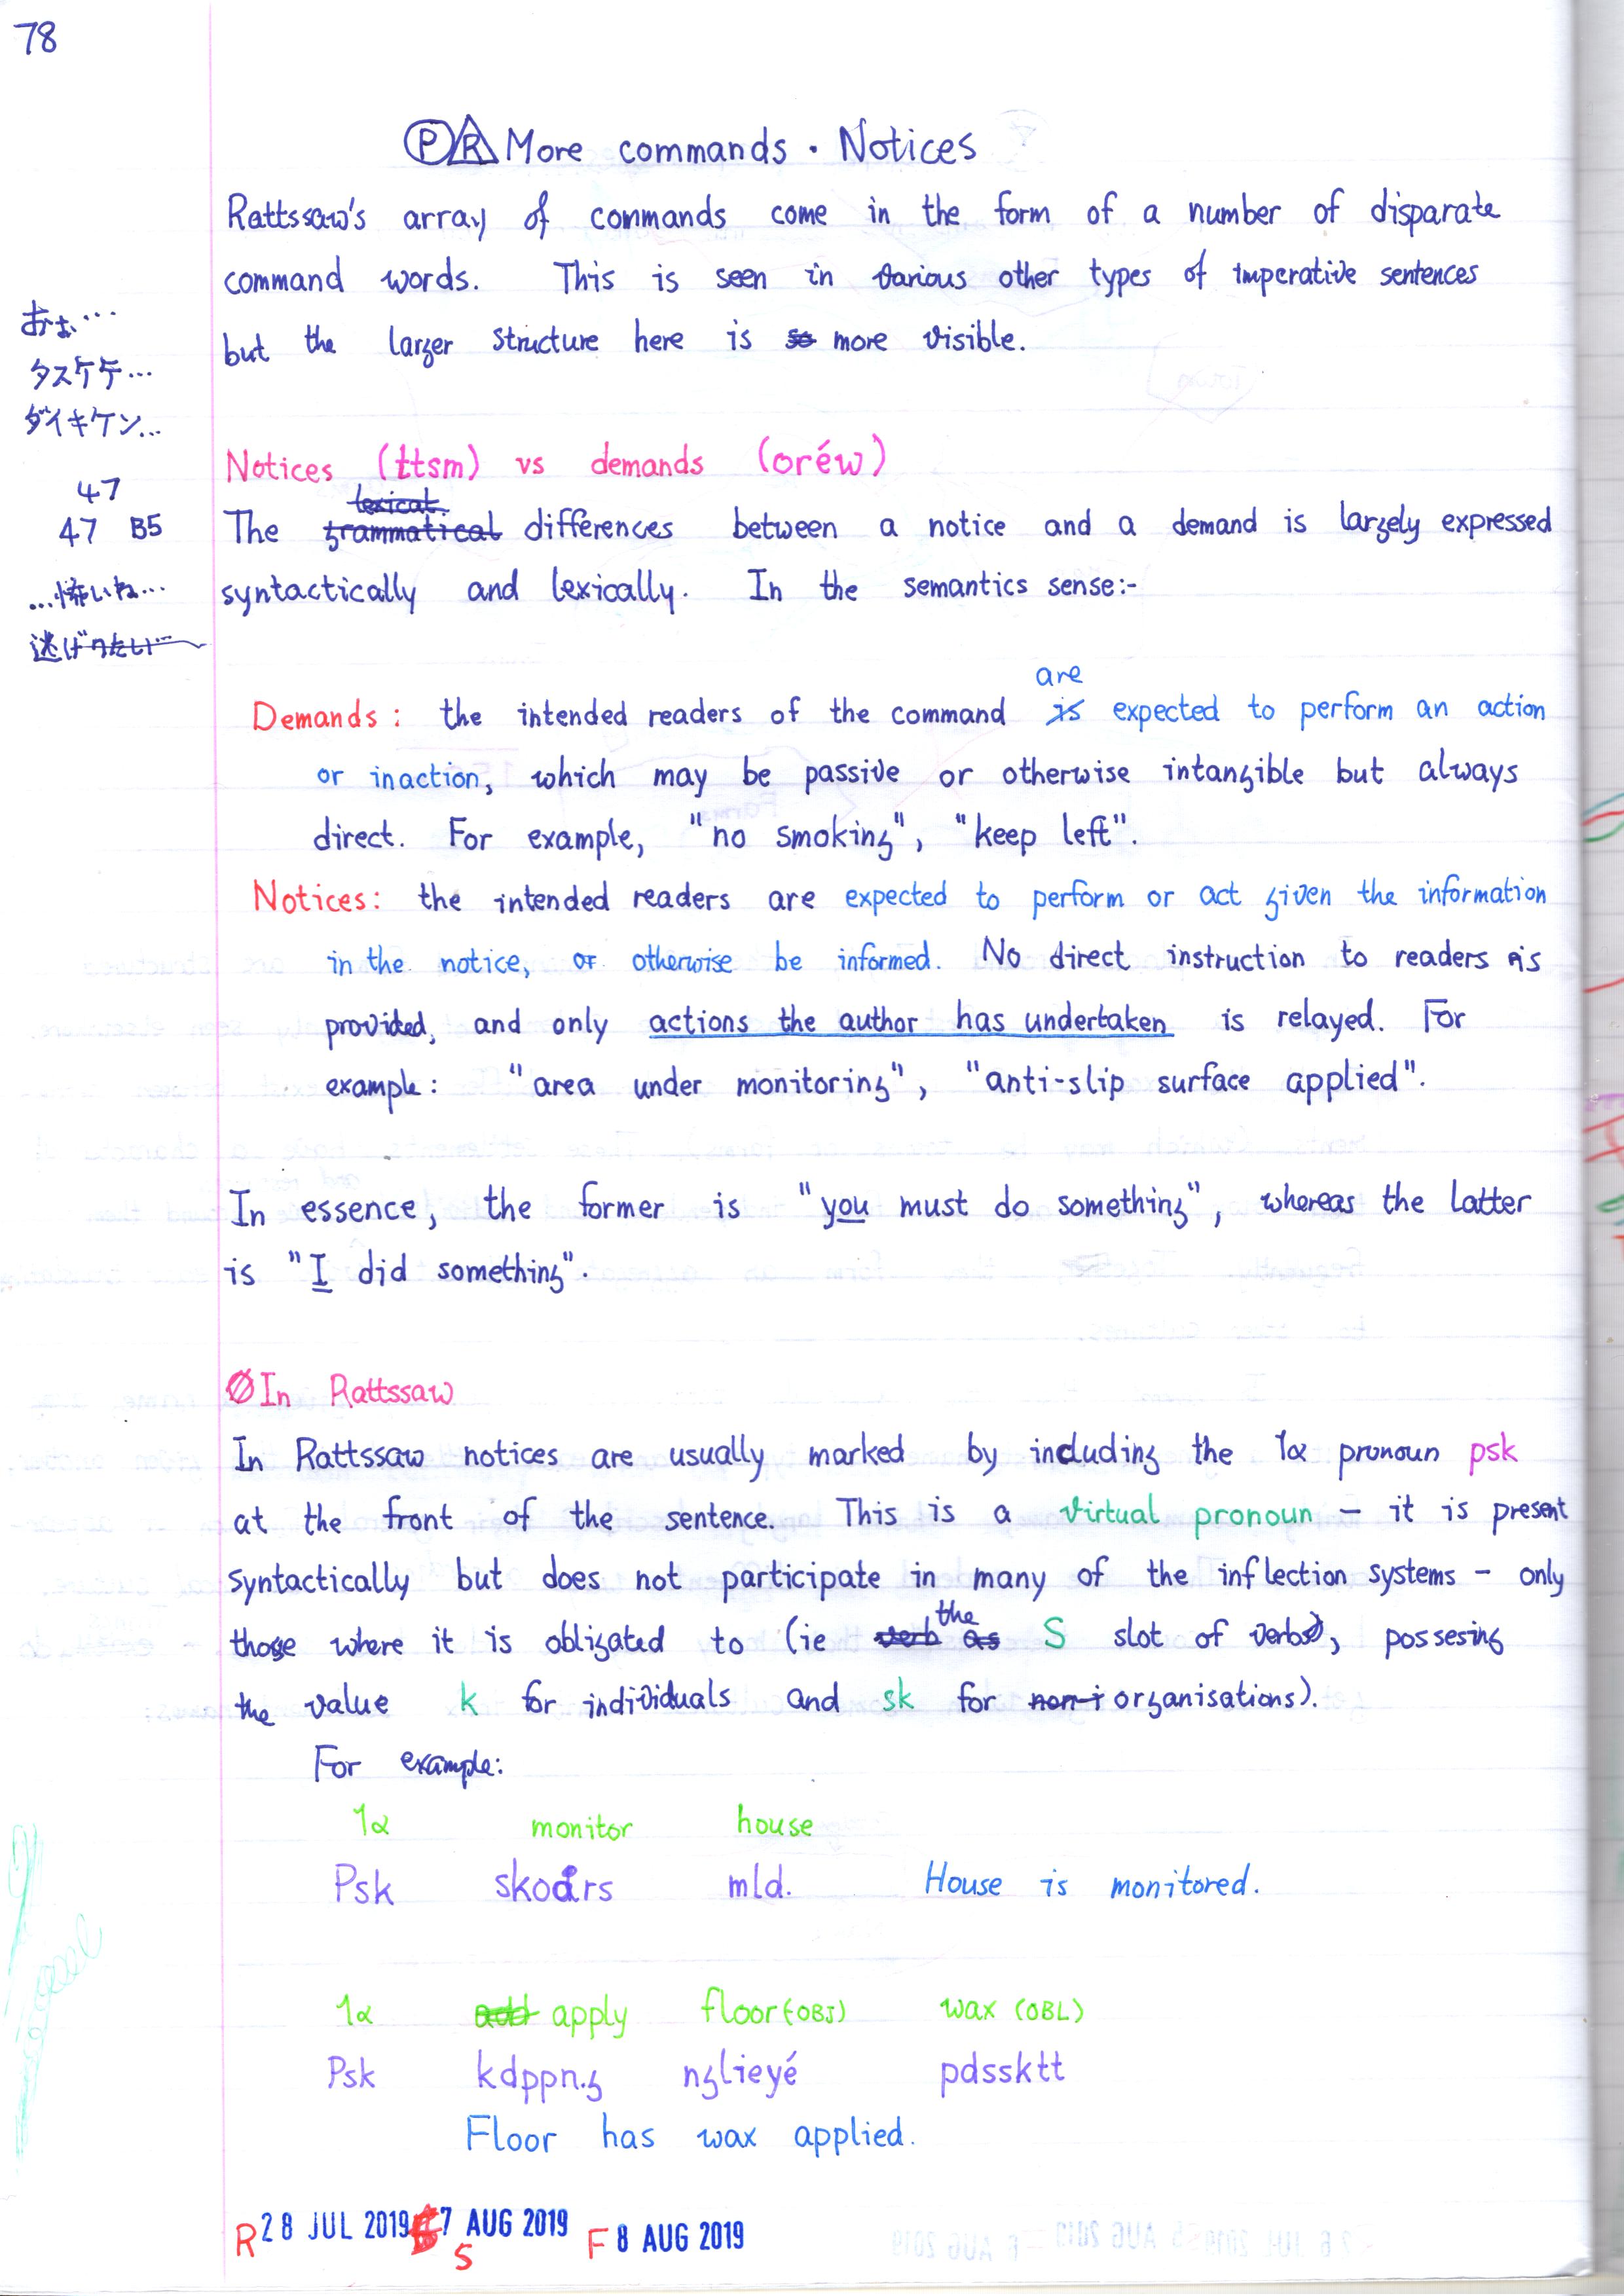 78
PR More commands · Notices
Rattssaw's array of commands come in the form of a number of disparate
command words. This is seen in various other types of imperative sentences
but the larger structure here is so more visible.
おぉ…
タスケテ…
ダイキケン…
47
47 B5
…怖いね…
Notices (ttsm) vs demands (oréw)
lexical
The grammatical differences between a notice and a demand is largely expressed
syntactically and lexically. In the semantics sense:-
are
Demands: the intended readers of the command is expected to perform an action
or inaction, which may be passive or otherwise intangible but always
direct. For example, "no smoking", "keep left".
Notices: the intended readers are expected to perform or act given the information
in the notice, or otherwise be informed. No direct instruction to readers is
provided, and only actions the author has undertaken is relayed. For
example: "area under monitoring", "anti-slip surface applied".
In essence, the former is "you must do something", whereas the latter
is "I did something".
In Rattssaw
In Rattssaw notices are usually marked by including the 1α pronoun psk
at the front of the sentence. This is a virtual pronoun – it is present
syntactically but does not participate in many of the inflection systems - only
the
those where it is obligated to (ie verb as S slot of verbs), possesing
the value k for individuals and sk for non-i organisations).
For example:
1α monitor house
Psk skoårs mld. House is monitored.
1α add apply floor(OBJ) wax (OBL)
Psk kdppng nglieyé pdssktt
Floor has wax applied.
R 28 JUL 2019 S 7 AUG 2019 F 8 AUG 2019